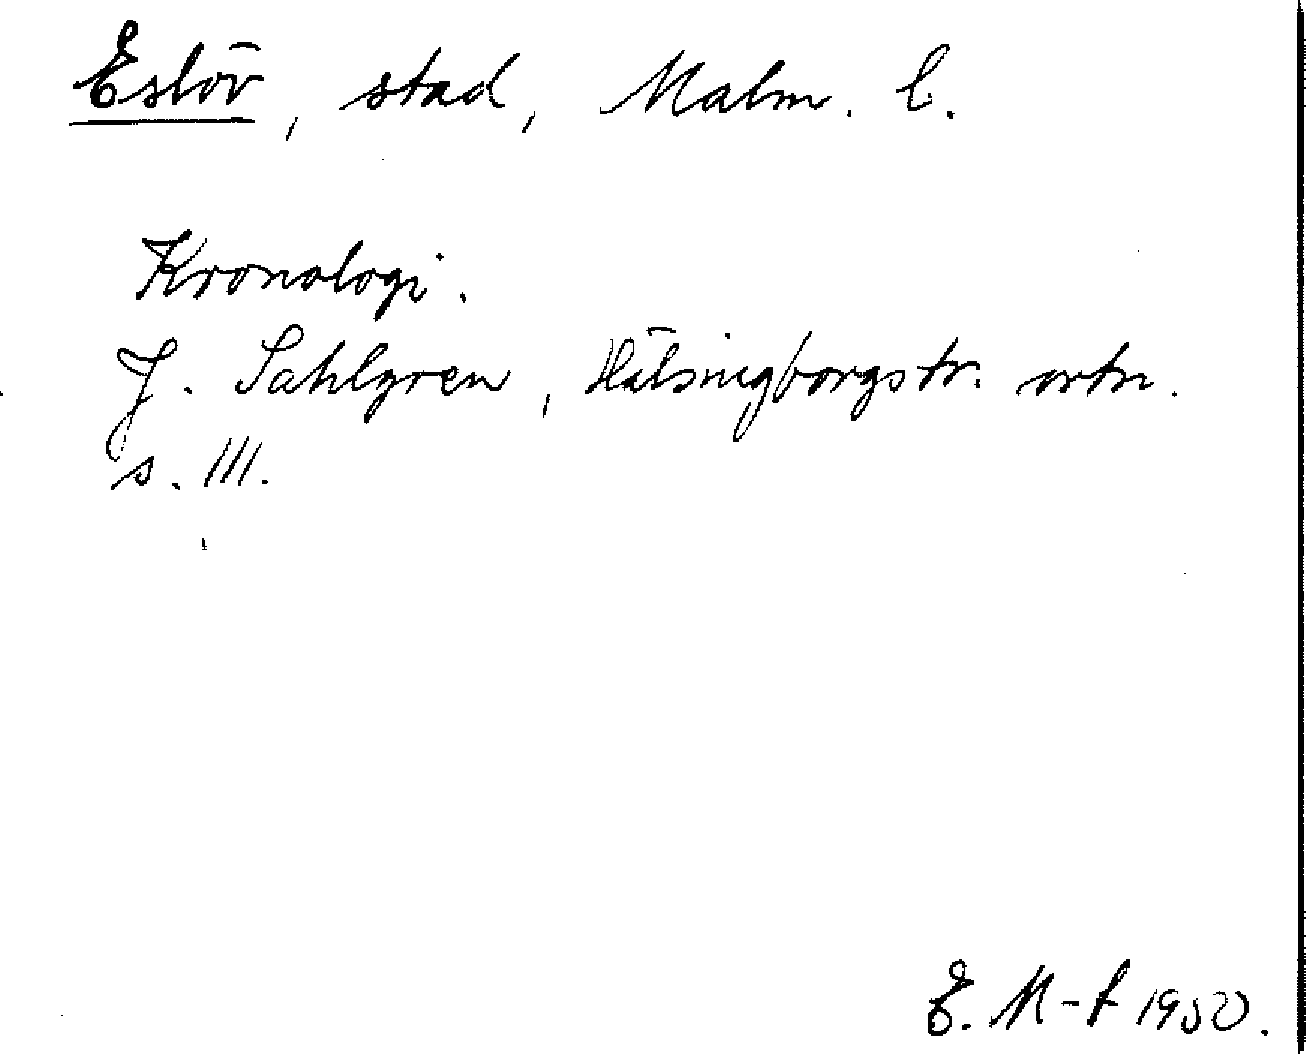 Eslöv, stad, Malm. l.
Kronologi.
J. Sahlgren, Hälsingborgstr. ortn.
s. 111.
E. M-t 1950.